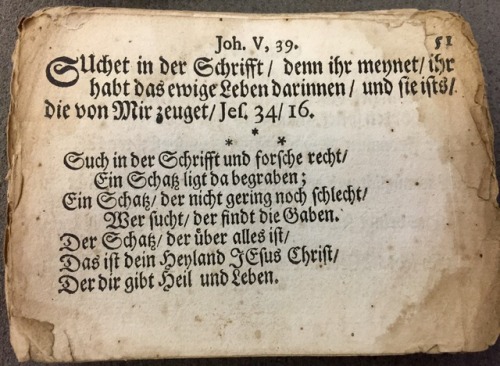 Joh. V, 39. 51
SUchet in der Schrifft / denn ihr meynet / ihr
habt das ewige Leben darinnen / und sie ists /
die von Mir zeuget / Jes. 34 / 16.
* * *
Such in der Schrifft und forsche recht /
Ein Schatz ligt da begraben;
Ein Schatz / der nicht gering noch schlecht /
Wer sucht / der findt die Gaben.
Der Schatz / der über alles ist /
Das ist dein Heyland JEsus Christ /
Der dir gibt Heil und Leben.